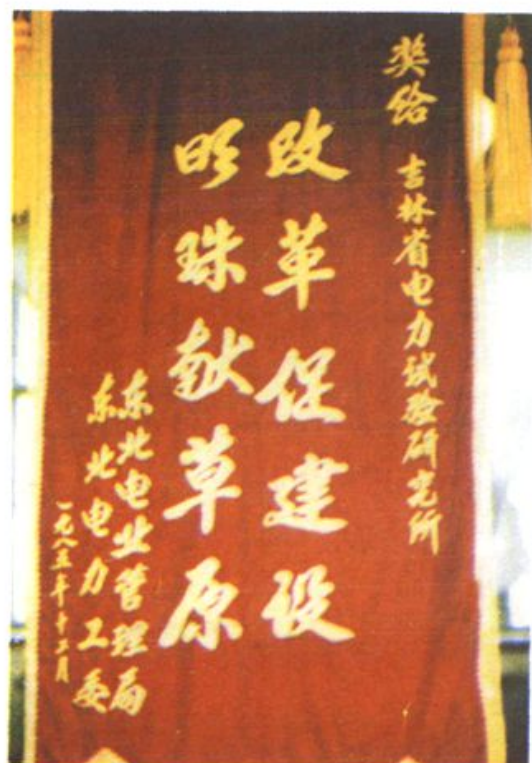 奖给 吉林省电力试验研究所
改革促建设
明珠献草原
东北电业管理局
东北电力工委
一九八五年十二月